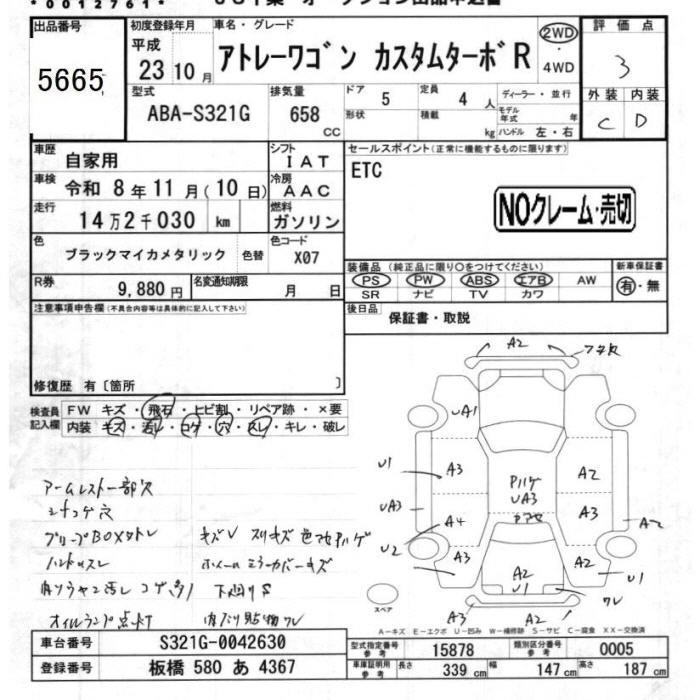 *0012761*
出品番号
5665
初度登録年月
平成
23 10月
車名・グレード
アトレーワゴン カスタムターボR
2WD
・
4WD
評価点
3
型式
ABA-S321G
排気量
658
CC
ドア
5
定員
4人
ディーラー・並行
形状
積載
kg
モデル年式 年
ハンドル 左・右
外装 内装
C D
車歴
自家用
シフト
IAT
セールスポイント(正常に機能するものに限ります)
ETC
車検
令和 8年11月(10日)
冷房
AAC
NOクレーム・売切
走行
14万2千030 km
燃料
ガソリン
色
ブラックマイカメタリック 色替
色コード
X07
装備品 (純正品に限り○をつけてください)
新車保証書
PS PW ABS エアB AW
有・無
SR ナビ TV カワ
R券
9,880円
名変通知期限
月 日
後日品
保証書・取説
注意事項申告欄(不具合内容等は具体的に記入して下さい)
修復歴 有〔箇所 〕
検査員
記入欄
FW キズ・飛石・ヒビ割・リペア跡・×要
内装 キズ・汚レ・コゲ・穴・スレ・キレ・破レ
アームレスト一部欠
シートコゲ穴
ハンドルスレ
キズV スリキズ
ホイールミラーカバーキズ
下廻りS
オイルランプ点灯
A2
UA1
U1
A3
A2
UA3
Pハゲ
UA3
A4
A3
A2
U2
A3
A2
U1
A2
U1
ワレ
A3
A2
スペア
A-キズ E-エクボ U-凹み W-補修跡 S-サビ C-腐食 XX-交換済
車台番号
S321G-0042630
型式指定番号
参考
15878
類別区分番号
参考
0005
登録番号
板橋 580 あ 4367
車庫証明用
参考
長さ
339 cm
幅
147 cm
高さ
187 cm